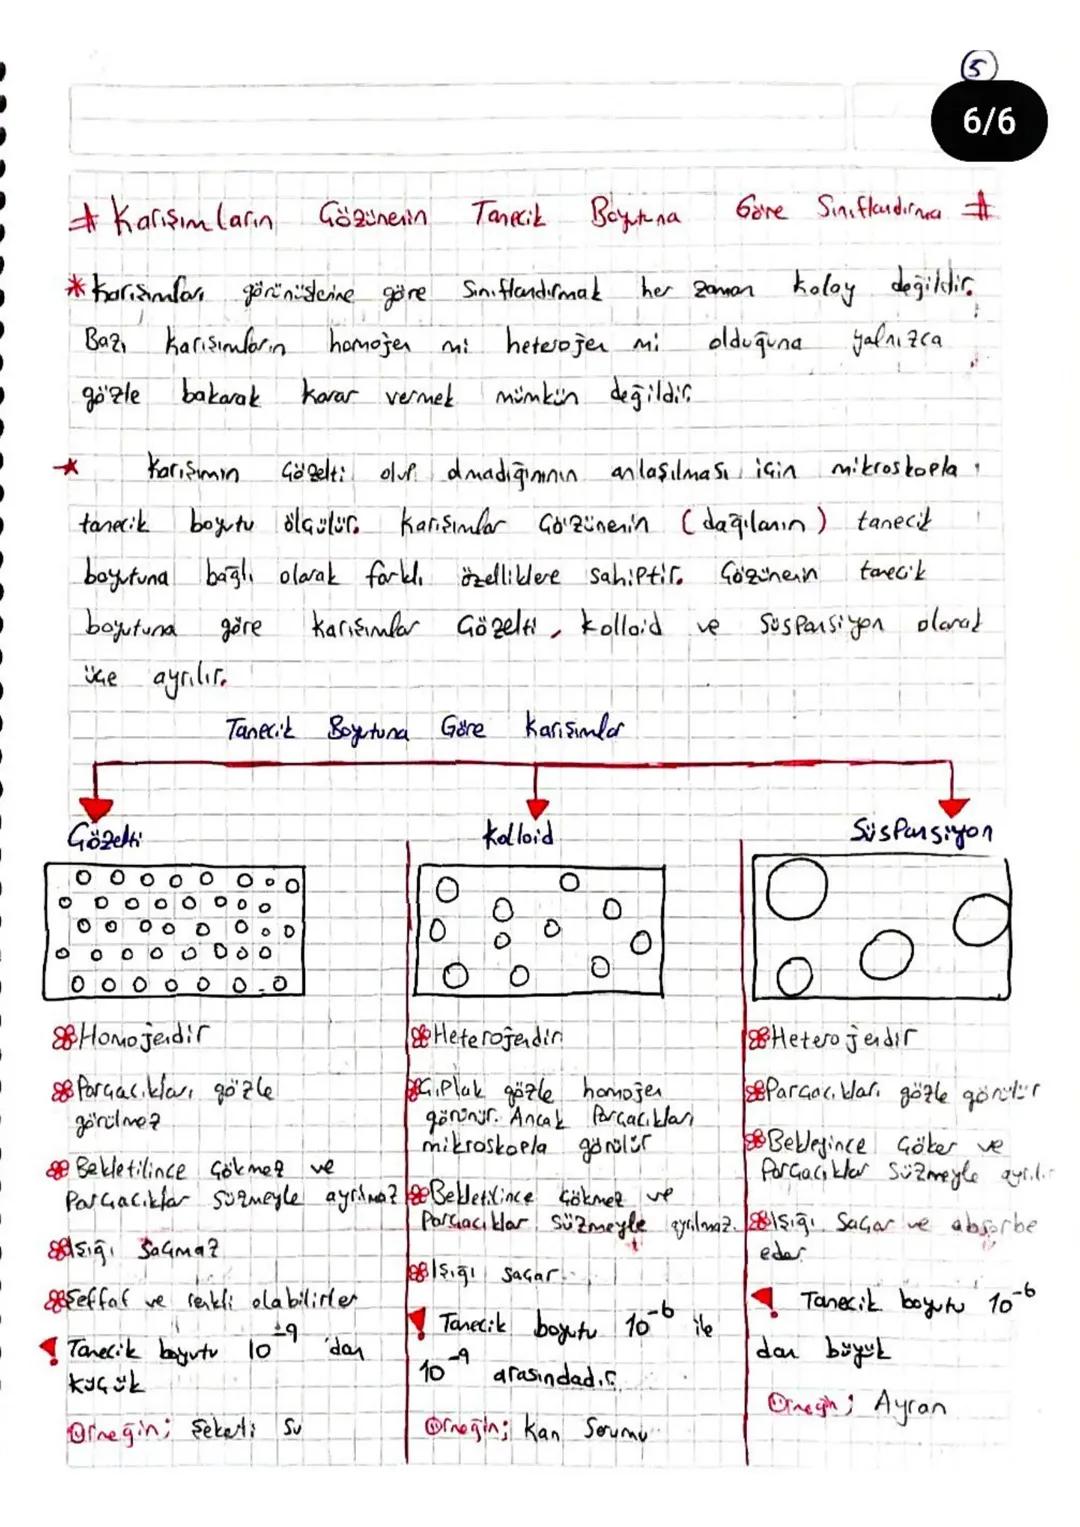 5
6/6
# Karışımların Çözünenin Tanecik Boyutuna Göre Sınıflandırma #
* Karışımları görünüşlerine göre sınıflandırmak her zaman kolay değildir.
Bazı karışımların homojen mi heterojen mi olduğuna yalnızca
gözle bakarak karar vermek mümkün değildir.
* Karışımın Çözelti olup olmadığınının anlaşılması için mikroskopla
tanecik boyutu ölçülür. Karışımlar Çözünenin (dağılanın) tanecik
boyutuna bağlı olarak farklı özelliklere sahiptir. Çözünenin tanecik
boyutuna göre karışımlar Çözelti, kolloid ve süspansiyon olarak
üçe ayrılır.
Tanecik Boyutuna Göre Karışımlar
Çözelti
Kolloid
Süspansiyon
Homojendir
Parçacıkları gözle
görülmez
Bekletilince Çökmez ve
Parçacıklar Süzmeyle ayrılmaz
Işığı Saçmaz
Şeffaf ve renkli olabilirler
! Tanecik boyutu 10⁻⁹ 'dan
küçük
Örneğin; Şekerli Su
Heterojendir
Çıplak gözle homojen
görünür. Ancak Parçacıkları
mikroskopla görülür
Bekletilince Çökmez ve
Parçacıklar Süzmeyle ayrılmaz.
Işığı saçar.
! Tanecik boyutu 10⁻⁶ ile
10⁻⁹ arasındadır.
Örneğin; Kan Serumu
Heterojendir
Parçacıkları gözle görülür
Bekleyince Çöker ve
Parçacıklar Süzmeyle ayrılır
Işığı Saçar ve absorbe
eder
! Tanecik boyutu 10⁻⁶
dan büyük
Örneğin; Ayran